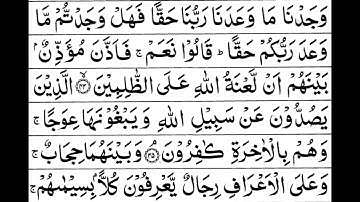 وَجَدْنَا مَا وَعَدَنَا رَبُّنَا حَقًّا فَهَلْ وَجَدْتُّمْ مَّا
وَعَدَ رَبُّكُمْ حَقًّا ؕ قَالُوْا نَعَمْ ۚ فَاَذَّنَ مُؤَذِّنٌۢ
بَيْنَهُمْ اَنْ لَّعْنَةُ اللّٰهِ عَلَى الظّٰلِمِيْنَ ۙ﴿۴۴﴾ الَّذِيْنَ
يَصُدُّوْنَ عَنْ سَبِيْلِ اللّٰهِ وَ يَبْغُوْنَهَا عِوَجًا ۚ
وَهُمْ بِالْاٰخِرَةِ كٰفِرُوْنَ ۘ﴿۴۵﴾ وَبَيْنَهُمَا حِجَابٌ ۚ
وَعَلَى الْاَعْرَافِ رِجَالٌ يَّعْرِفُوْنَ كُلًّاۢ بِسِيْمٰىهُمْ ۚ